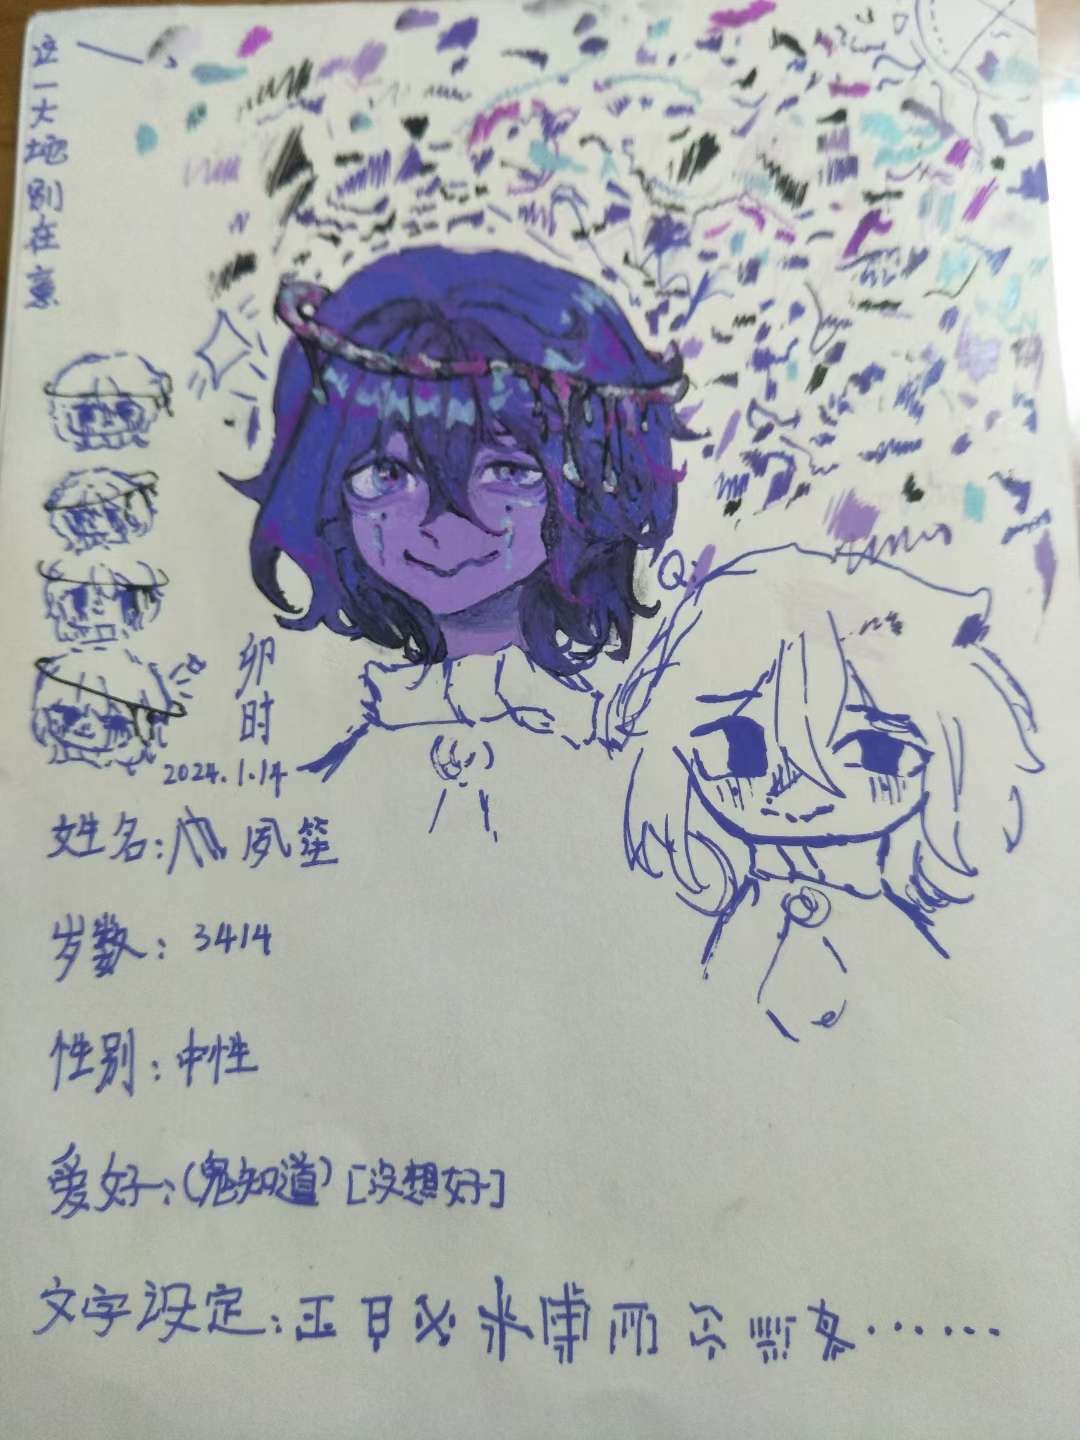 这一大地别在意
Q:
卯时
2024.1.14
姓名: 夙笙
岁数: 3414
性别: 中性
爱好:(鬼知道)[没想好]
文字设定: